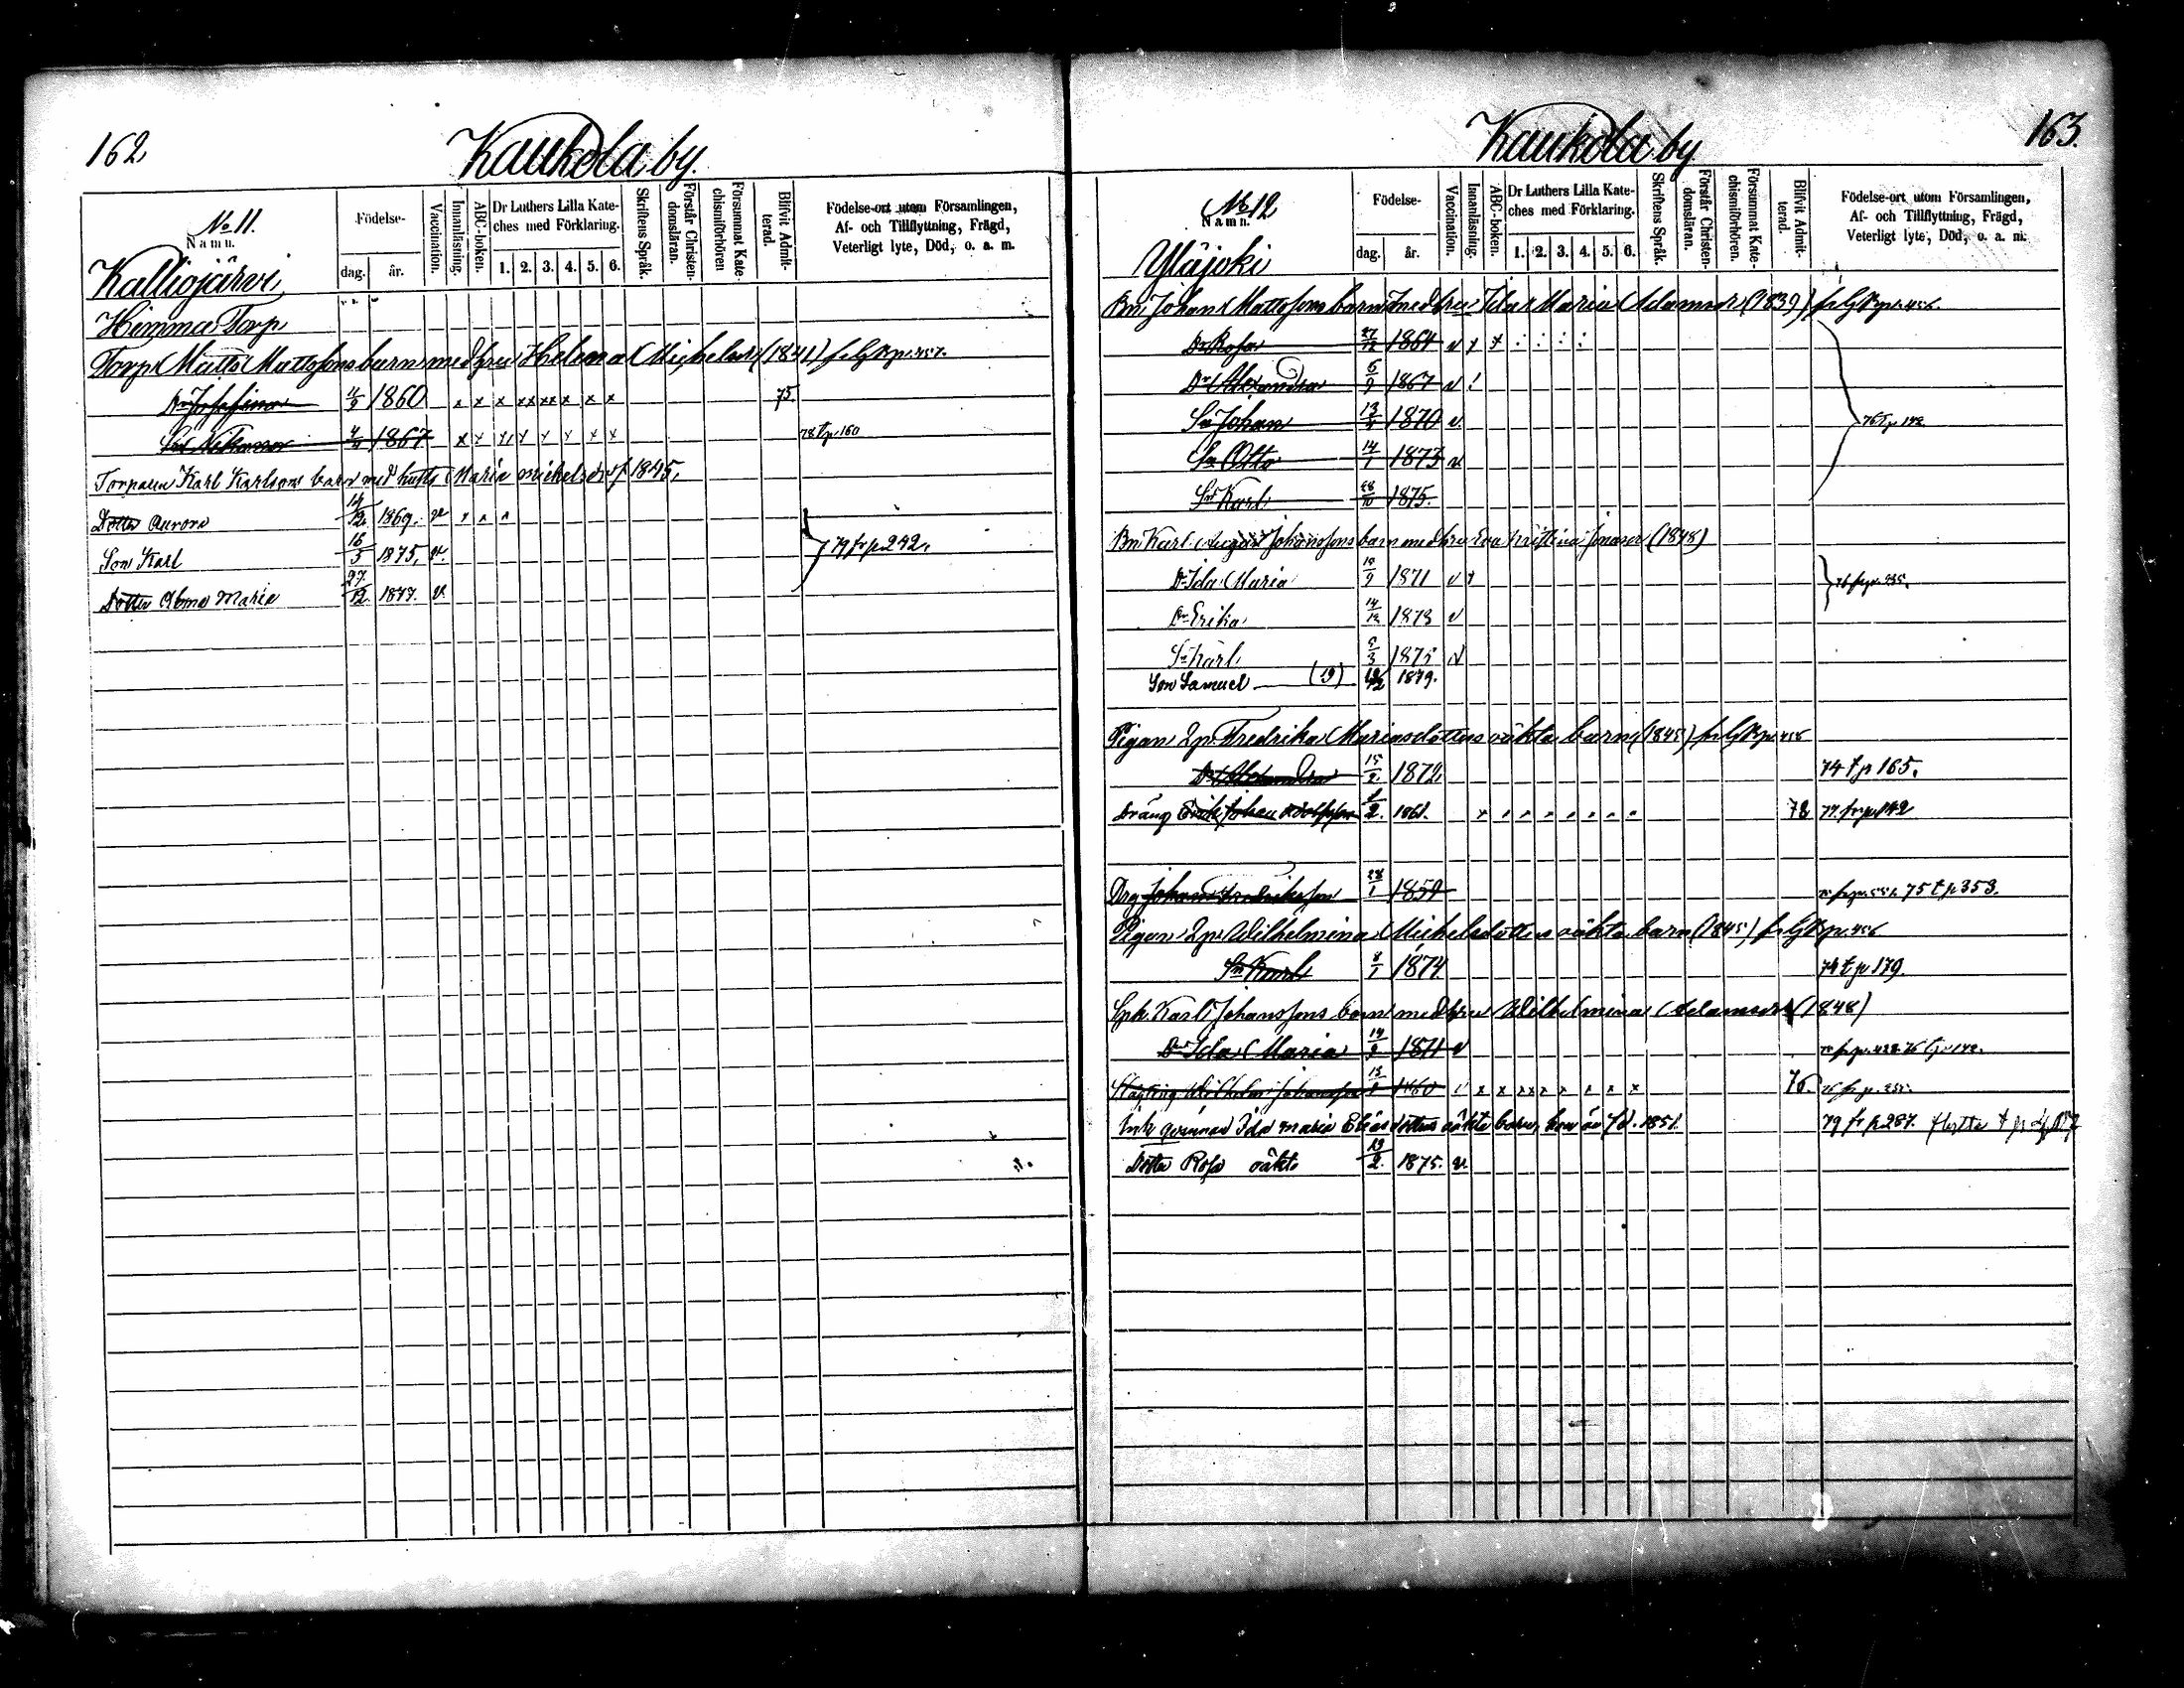 162
Kaukola by.
No 11.
Namn.
Födelse-
dag. år.
Vaccination.
Innanläsning.
ABC-boken.
Dr Luthers Lilla Kate-
ches med Förklaring.
1. 2. 3. 4. 5. 6.
Skriftens Språk.
Förstår Christen-
domsläran.
Försummat Kate-
chismiförhören
Blifvit Admit-
terad.
Födelse-ort utom Församlingen,
Af- och Tillflyttning, Frägd,
Veterligt lyte, Död, o. a. m.
Kalliojärvi
Himma Torp
Torp Matts Mattssons barn med hru Helena Michelsdr (1841) fr GKp. 457.
Dr Josefina 1860 x x x xx xx x x x 75
Sn 4/9 1867 x x x x x x x x 78 t p. 160
Torparen Karl Karlsons barn med hustr. Maria Michelsdr f 1845,
Dotter Aurora 14/12 1869. v x x x
Son Karl 16/5 1875, v. } 79 fr p 242.
Dotter Alma Maria 27/12 1877. v.
163.
Kaukola by.
No 12
Namn.
Födelse-
dag. år.
Vaccination.
Innanläsning.
ABC-boken.
Dr Luthers Lilla Kate-
ches med Förklaring.
1. 2. 3. 4. 5. 6.
Skriftens Språk.
Förstår Christen-
domsläran.
Försummat Kate-
chismiförhören.
Blifvit Admit-
terad.
Födelse-ort utom Församlingen,
Af- och Tillflyttning, Frägd,
Veterligt lyte, Död, o. a. m.
Yläjoki
Bn Johan Mattssons barn med hru Ida Maria Adamsdr (1839) fr GKp. 456.
Dr Rosa 27/12 1864 v x x
Dr Alexandra 6/9 1867 v
Sn Johan 1870 v
Sn Otto 14/1 1873 v
Sn Karl 28/10 1875.
Bn Karl August Johanssons barn med hru Eva Kristina Jonasdr (1848)
Dr Ida Maria 1871 v x
Dr Erika 14/12 1873 v
Sn Karl 1875 v
Son Samuel (19) 1879.
Pigan Lp. Fredrika Mariasdotters oäkta barn (1845) fr GKp. 456
Dr Alexandra 15/2. 1872 74 t p 165.
Dräng Erik Johan Adolfsson 1861. 78 77. fr p 142
Drg Johan Fredriksson 28/1 1859 75 t p 353.
Pigan Lp. Wilhelmina Michelsdotters oäkta barn (1845) fr GKp. 456
Sn Karl 8/1 1874 74 t p 179.
Sph. Karl Johanssons barn med hru Wilhelmina Adamsdr (1848)
Dr Ida Maria 1871 v
Wilhelm Johansson 1860 x x xx x x x x x 76.
Ida Maria Eliasdotters oäkta barn, f d. 1851. 79 fr p 287.
Dotter Rosa oäkta 19/2. 1875. v.